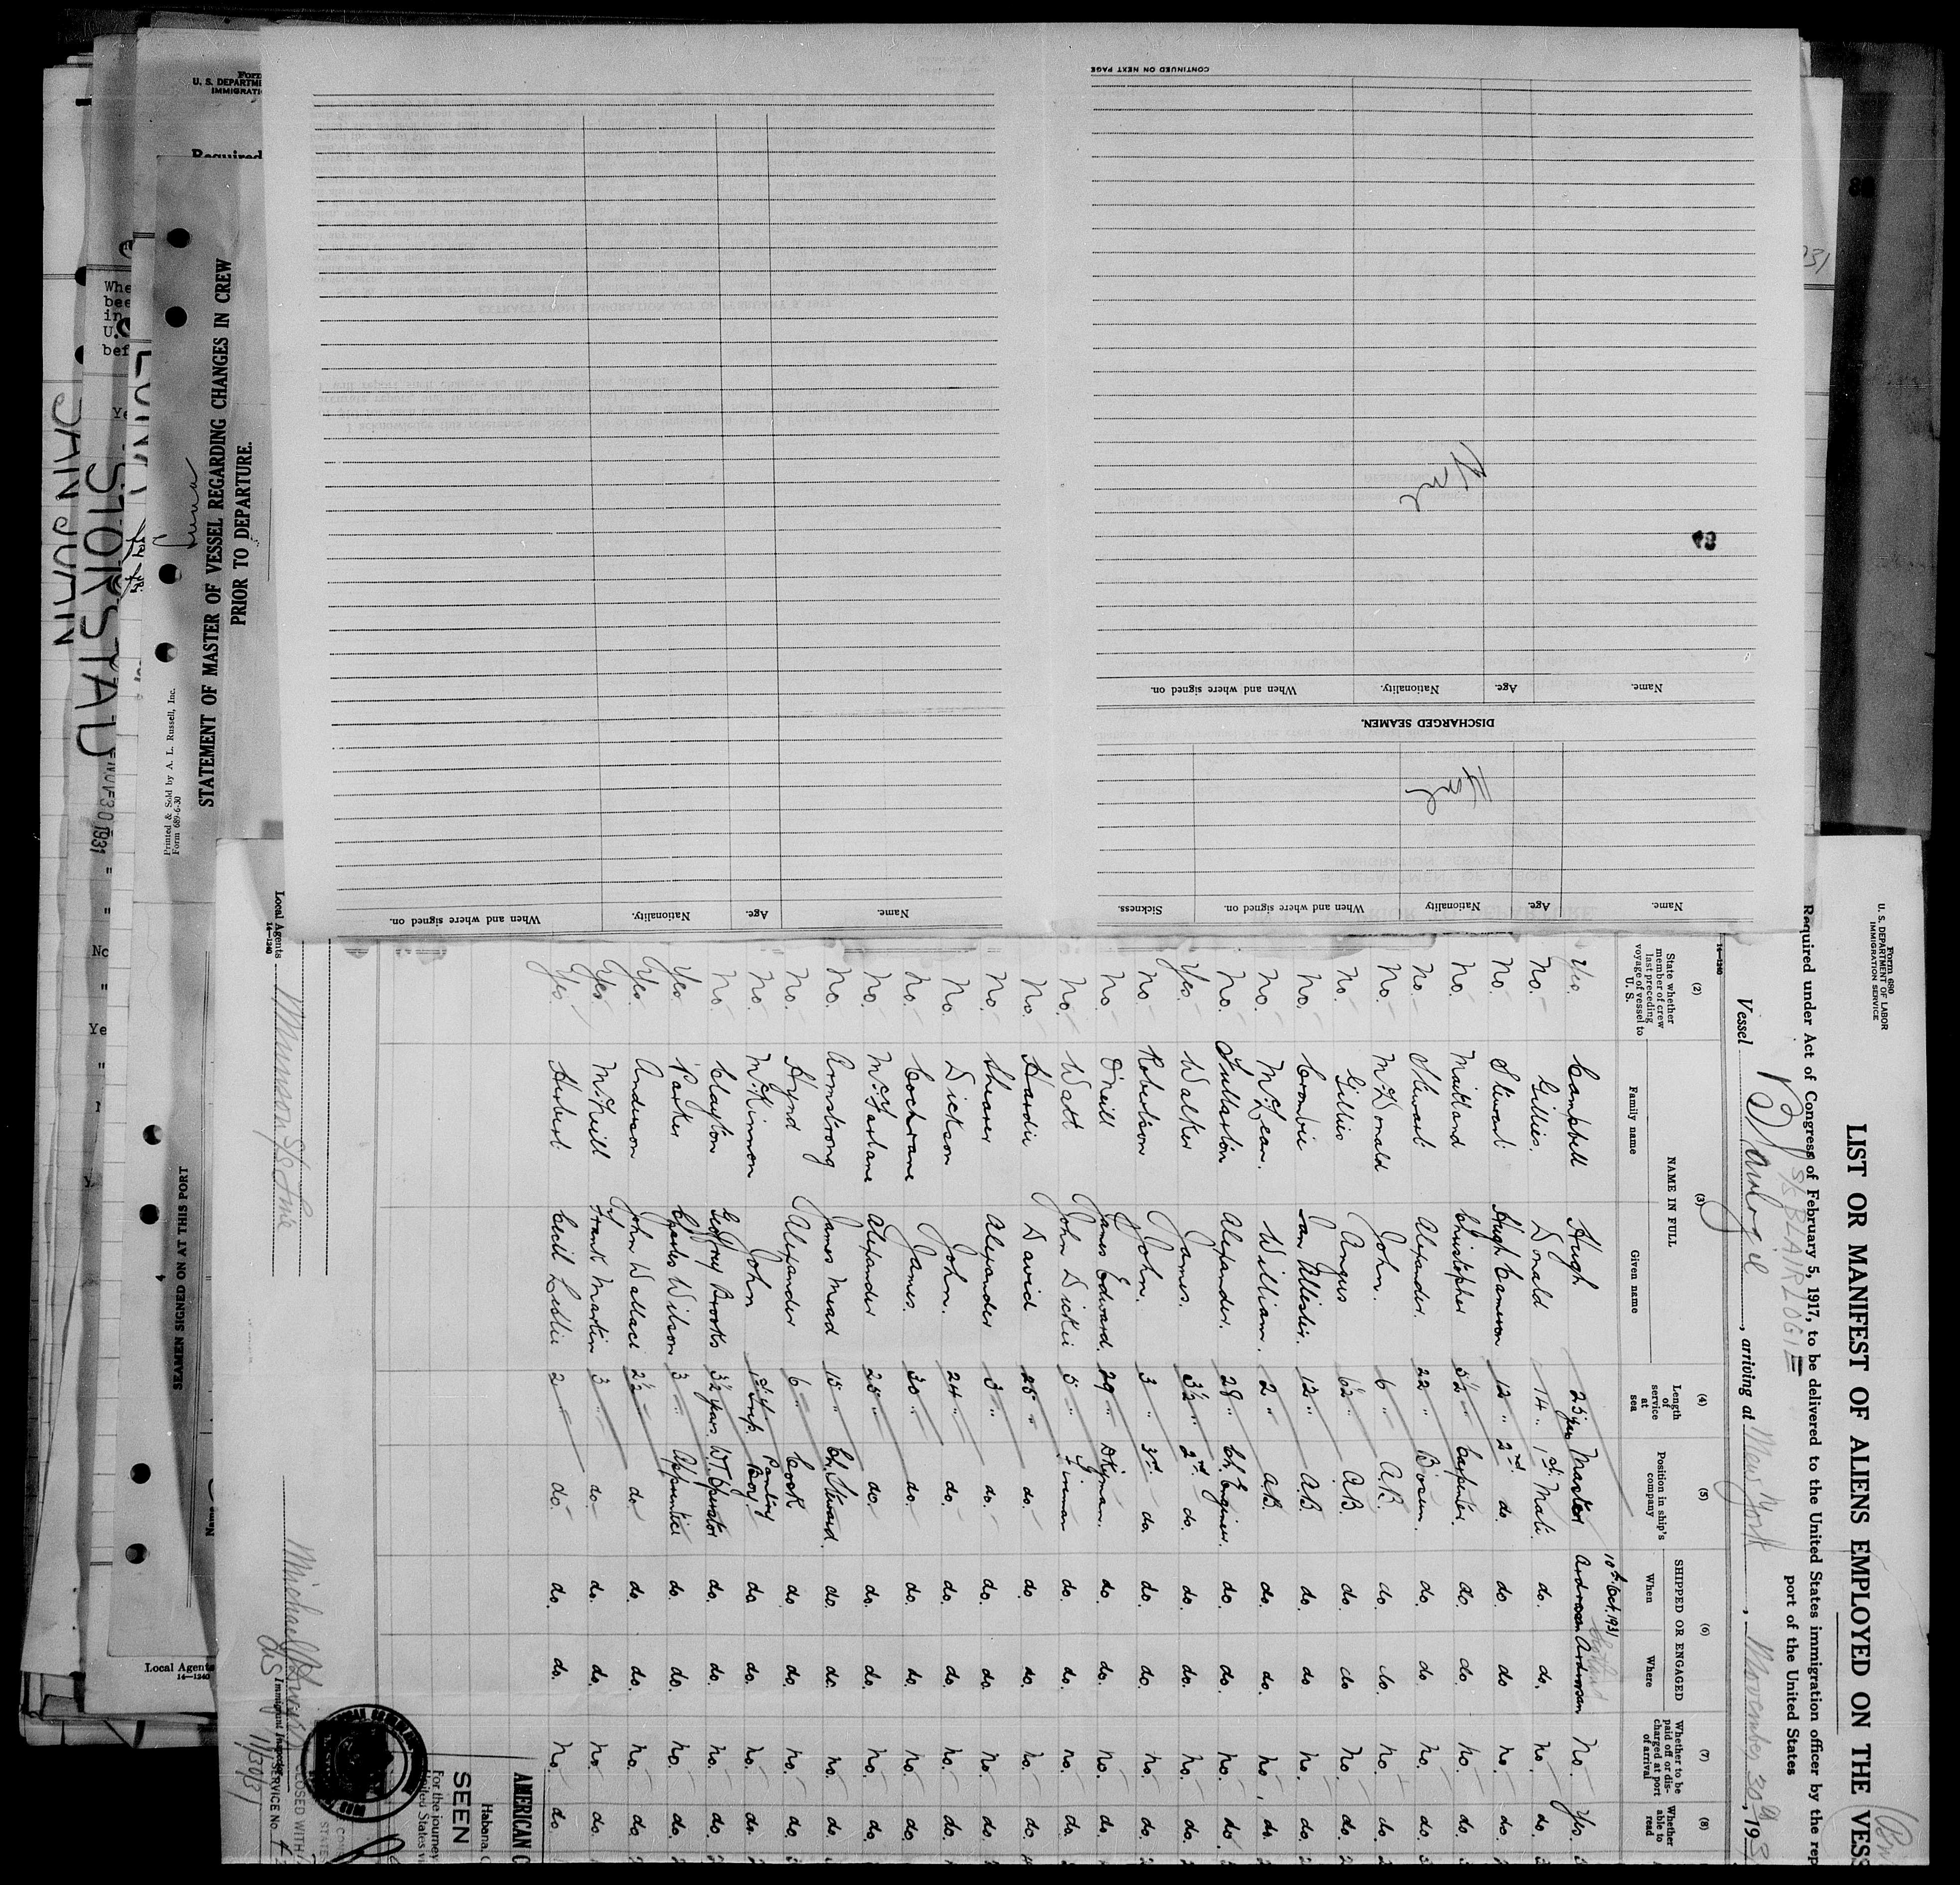 Form 680
U. S. DEPARTMENT OF LABOR
IMMIGRATION SERVICE
LIST OR MANIFEST OF ALIENS EMPLOYED ON THE VESS
Required under Act of Congress of February 5, 1917, to be delivered to the United States immigration officer by the rep
port of the United States
S/S BLAIRLOGIE
Vessel Blairlogie, arriving at New York, November 30th, 193
14—1240
(2) (3) (4) (5) (6) (7) (8)
State whether member of crew last preceding voyage of vessel to U. S.
NAME IN FULL
Family name Given name
Length of service at sea
Position in ship's company
SHIPPED OR ENGAGED
When Where
Whether to be paid off or discharged at port of arrival
Whether able to read
10th Oct. 1931
Yes. Campbell Hugh 25 yrs Master Ardrossan Ardrossan No. Yes.
No. Gillies. Donald 14 " 1st Mate. do. do. No. do.
No. Stewart Hugh Cameron 12 " 2nd do. do. do No. do.
No. Maitland Christopher 5½ " Carpenter. do. do No. do.
No. Stewart. Alexander. 22 " Bosun. do do No. do.
No. McDonald John. 6 " A.B. do. do. No. do.
No. Gillies Angus 6½ " A.B. do. do No. do.
No. Crombie Ian Allister. 12 " A.B. do. do No. do.
No. McLean. William. 2 " A.B. do. do. No. do.
No. Fullarton Alexander. 28 " Ch. Engineer. do. do. No. do.
Yes. Walker James. 3½ " 2nd do. do. do. No. do.
No. Robertson John. 3 " 3rd do. do. do. No. do.
No. O'Neill James Edward. 29 " Dkyman. do. do. No. do.
No. Watt John Dickie 5 " Fireman do. do. No. do.
No. Hardie David 25 " do. do do. No. do.
No. Shearer Alexander 3 " do. do. do. No. do.
No. Dickson John. 24 " do. do. do. No. do.
No. Cochrane James. 30 " do. do. do No. do.
No. McFarlane Alexander 25 " do. do. do. No. do.
No. Armstrong James Mead 15 " Ch. Steward. do. do. No. do.
No. Hynd Alexander 6 " Cook do do. No. do.
No. McKinnon John 1st Trip. Pantry Boy. do do. No. do.
No. Clayton Geoffrey Brooks 3½ years W.T. Operator do. do. No. do.
Yes. Parker Charles Wilson 3 " Apprentice do. do. No. do.
Yes. Anderson John Wallace 2½ " do do. do. No. do.
Yes. McNeill Frank Martin 3 " do do. do. No. do.
Yes Herbert. Cecil Leslie 2 " do. do. do. No. do.
AMERICAN C
Habana, C
SEEN
For the journey
United States vi
CLOSED WITH
SERVICE No.
Immigrant Inspector
11/30/31
Local Agents Munson S/S Line
14—1240
Name. Age. Nationality When and where signed on. Sickness.
None
DISCHARGED SEAMEN.
Name. Age. Nationality. When and where signed on.
None
84
CONTINUED ON NEXT PAGE
Name. Age. Nationality. When and where signed on.
Form
U. S. DEPARTME
IMMIGRATI
Required
STATEMENT OF MASTER OF VESSEL REGARDING CHANGES IN CREW
PRIOR TO DEPARTURE.
Printed & Sold by A. L. Russell, Inc.
Form 689-6-30
SEAMEN SIGNED ON AT THIS PORT
Name
Local Agents
14—1240
SAN JUAN
STORSTAD
NOV 30 1931
Whe
bee
in
U.
bef
Ye
No
Ye
931